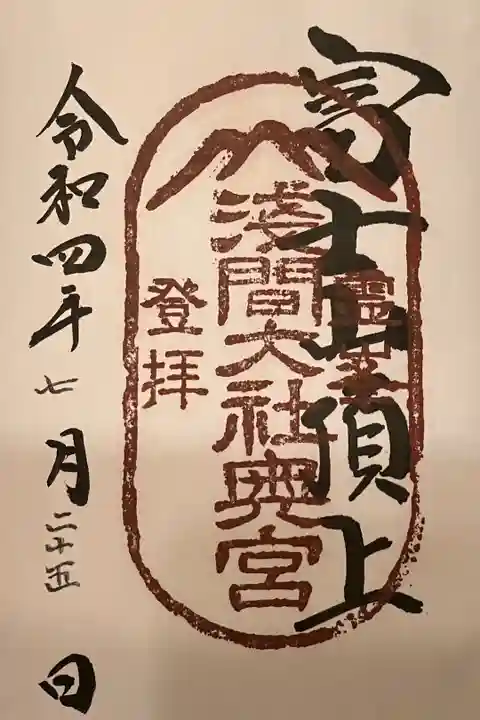 富士山頂上
霊峯
浅間大社奥宮
登拝
令和四年七月二十五日